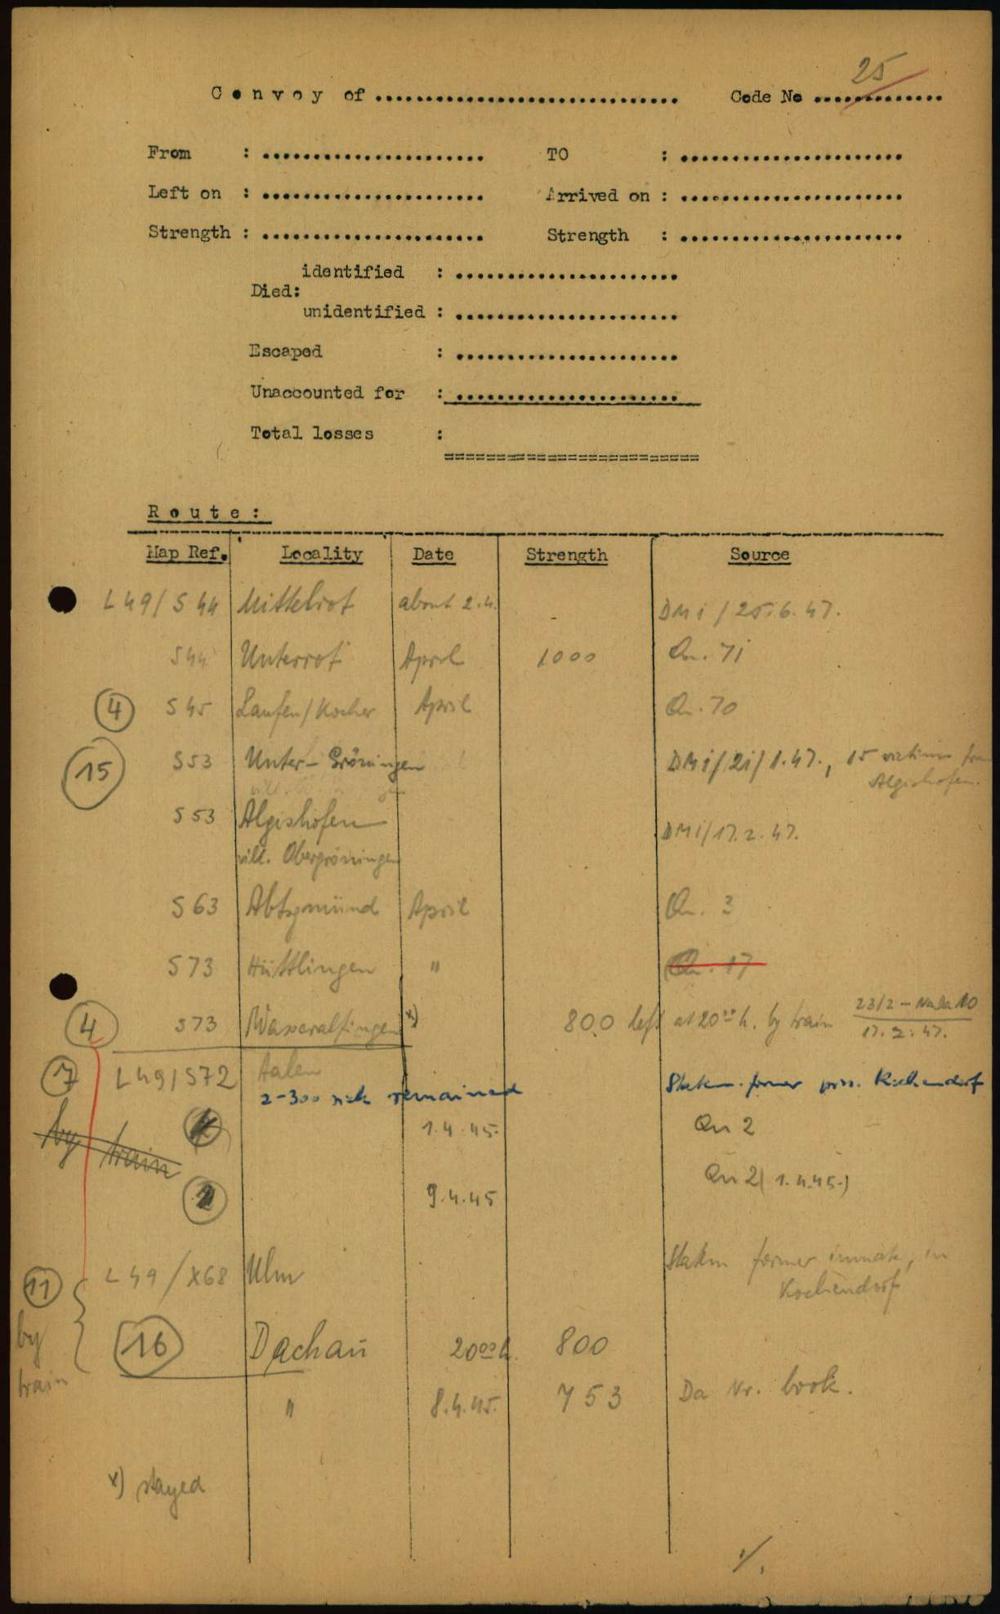 25
Convoy of .............................. Code No .............
From : ...................... TO : ......................
Left on : ...................... Arrived on : ......................
Strength : ...................... Strength : ......................
identified : ......................
Died:
unidentified : ......................
Escaped : ......................
Unaccounted for : ......................
Total losses :
=========================
Route:
Map Ref. Locality Date Strength Source
L49/S44 Mittelrot about 2.4. DMi/25.6.47.
S44 Unterrot April 1000 Qu. 71
4 S45 Laufen/Kocher April Qu. 70
15 S53 Unter-Gröningen DMi/21/1.47., 15 victims from
Algishofen.
S53 Algishofen DMi/17.2.47.
vill. Obergröningen
S63 Abtsgmünd April Qu. 3
S73 Hüttlingen " Qu. 17
4 S73 Wasseralfingen x) 800 left at 20°° h. by train 23/2 -
17.2.47.
7 L49/S72 Aalen
2-300 sick remained Statem. former pris. Kochendorf
1.4.45. Qu 2
by train
9.4.45 Qu 2 (1.4.45.)
11 L49/X68 Ulm Statem former inmate, in
Kochendorf
by train
16 Dachau 20°° h 800
" 8.4.45. 753 Da Nr. book.
x) stayed
./.